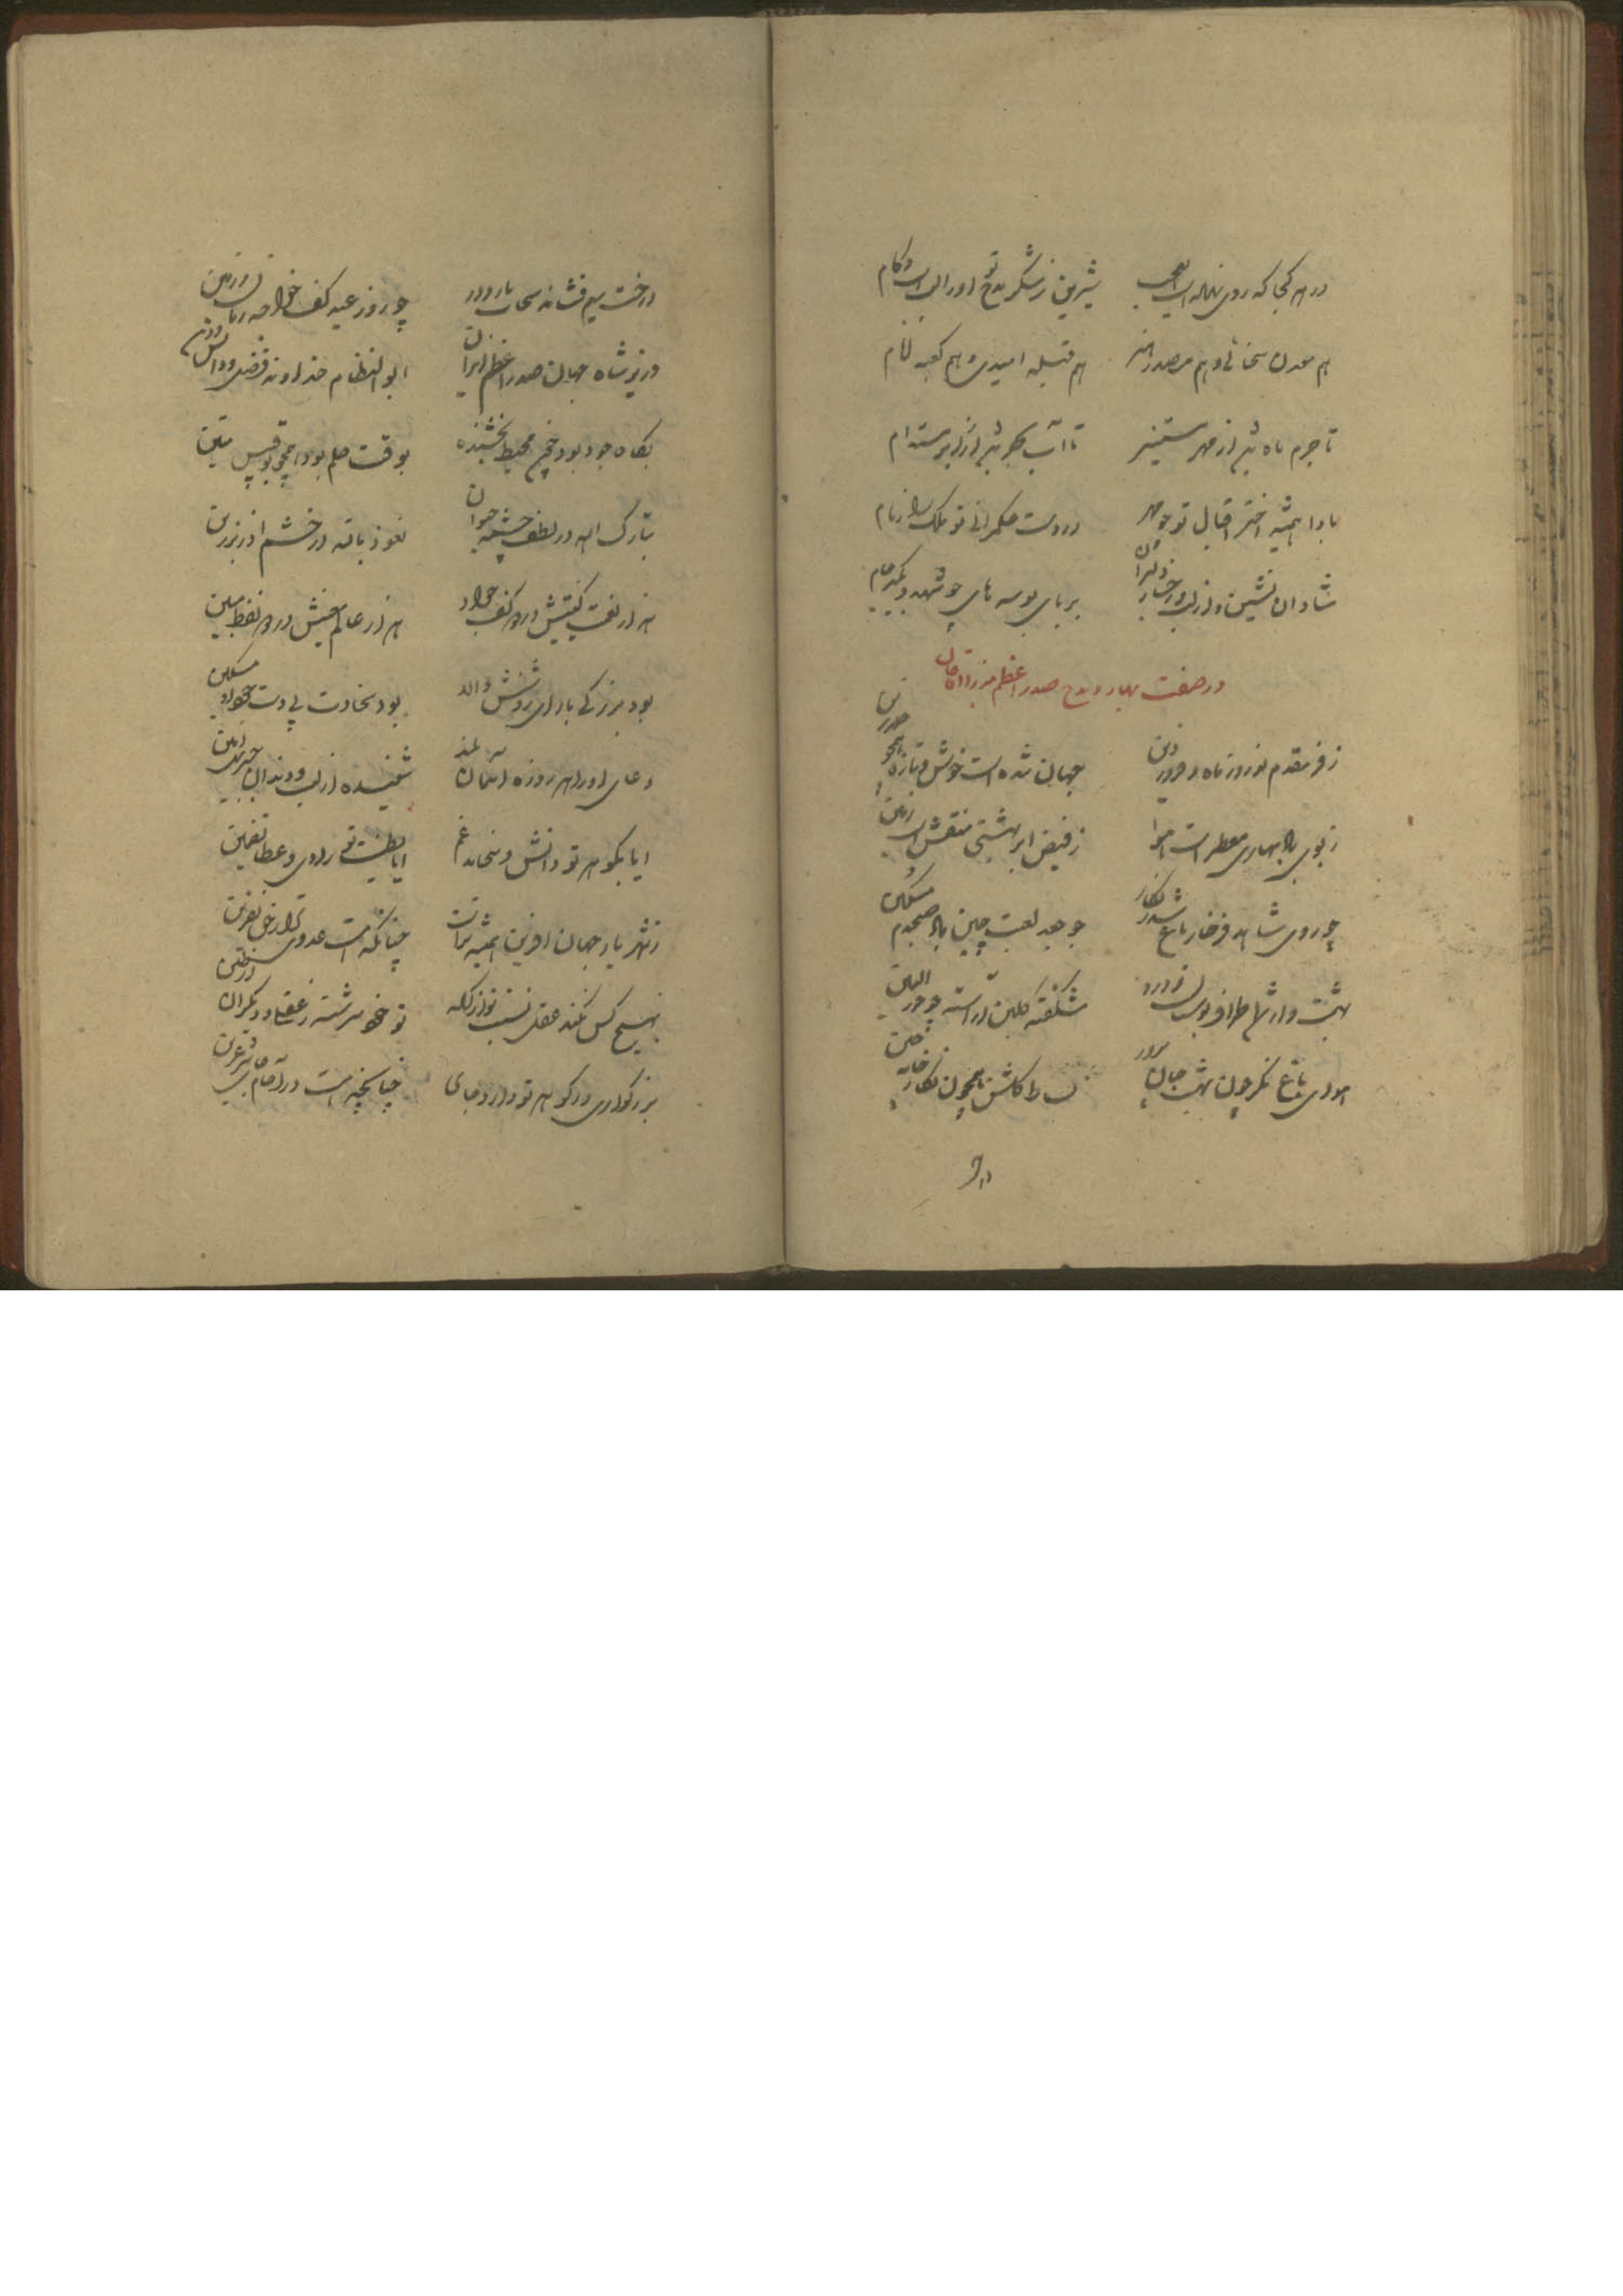 در هر کجا که روی نماید
شیرین ز شکر مدح تو او را لب و کام
هم معدن سخائی و هم مصدر هنر
هم قبله امیدی و هم کعبه انام
تا جرم ماه نیر از مهر مستنیر
تا آب بحر نیز از ابر مستدام
بادا همیشه اختر اقبال تو چو مهر
در دست حکمرانی تو ملک را زمام
شادان نشین و از لب و رخسار دلبران
بربای بوسه های چو شهد و بگیر جام
در صفت بهار و مدح صدر اعظم میرزا آقا خان
ز فر مقدم نوروز ماه فروردین
جهان شده است خوش و تازه همچو خلد برین
ز بوی باد بهاری معطر است هوا
ز فیض ابر بهشتی منقش است زمین
چو روی شاهد فرخار باغ شد ز نگار
چو جعد لعبت چین باد صبحدم مشکین
بهشت وار شد اطراف بوستان و در او
شکفته گلبن آراسته چو حور العین
هوای باغ نگر چون بهشت جان پرور
بساط گلشن همچون نگارخانه چین
درخت سیم فشاند سحاب بارد در
چو روز عید کف خواجه زمان و زمین
وزیر شاه جهان صدر اعظم ایران
ابو النظام خداوند فضل و دانش و دین
بگاه جود بود چون محیط بخشنده
بوقت حلم بود همچو بوقبیس متین
تبارک اله در لطف چشمه حیوان
نعوذ بالله در خشم آذر برزین
هزار نفت گیتیش در دو کف جواد
هزار عالم معنیش در دو لفظ مبین
بود بزرگی با رای روشنش واله
بود سخاوت بی دست جواد او مسکین
دعای او را هر روزه آسمان بلند
شنیده از لب و دندان جبریل امین
ایا بگوهر تو دانش و سخا مدغم
ایا بطینت تو رادی و عطا تضمین
ز شهریار جهان آفرین همیشه تراست
چنانکه هست عدوی ترا ز خلق نفرین
بهیچ کس نکند عقل نسبت تو از آنکه
تو خود سرشته ز عقلی و دیگران از طین
بزرگواری در گوهر تو دارد جای
چنانچه هست در آقام شرعرین